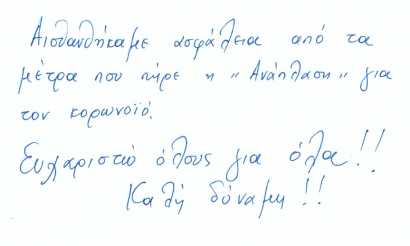 Αισθανθήκαμε ασφάλεια από τα
μέτρα που πήρε η "Ανάπλαση" για
τον κορωνοϊό.
Ευχαριστώ όλους για όλα!!
Καλή δύναμη!!